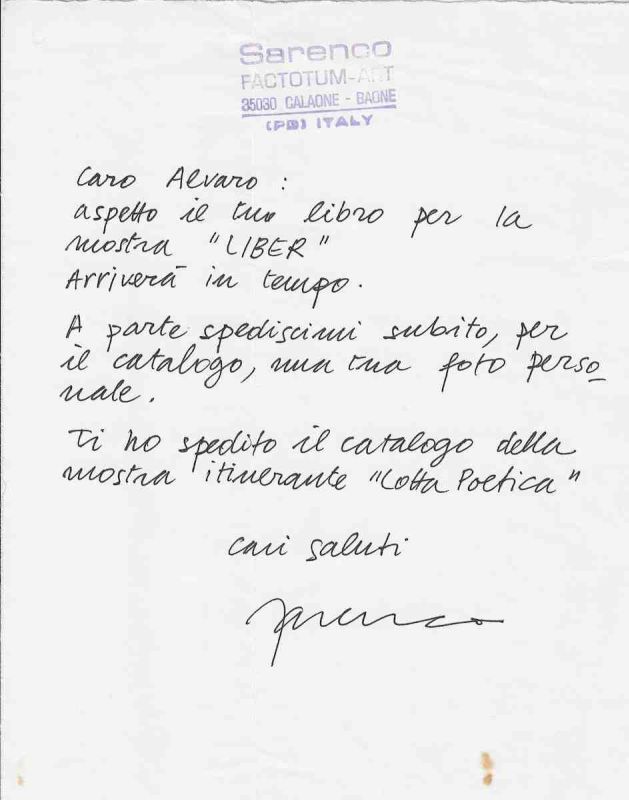 Sarenco
FACTOTUM-ART
35030 CALAONE - BAONE
(PD) ITALY
Caro Alvaro :
aspetto il tuo libro per la
mostra "LIBER"
Arriverà in tempo.
A parte spediscimi subito, per
il catalogo, una tua foto perso_
nale.
Ti ho spedito il catalogo della
mostra itinerante "Lotta Poetica"
cari saluti
Sarenco